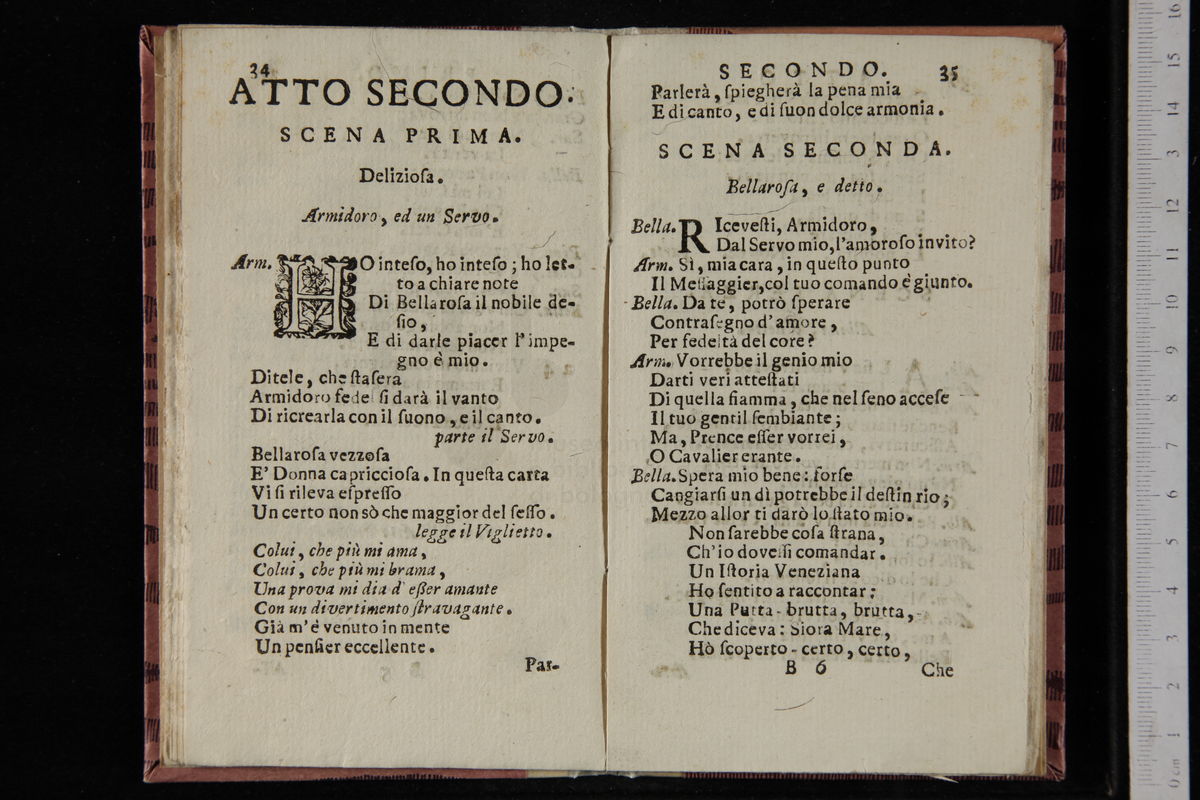 34
ATTO SECONDO.
SCENA PRIMA.
Delizioſa.
Armidoro, ed un Servo.
Arm. HO inteſo, ho inteſo; ho let-
to a chiare note
Di Bellaroſa il nobile de-
ſio,
E di darle piacer l'impe-
gno è mio.
Ditele, che ſtaſera
Armidoro fedel ſi darà il vanto
Di ricrearla con il ſuono, e il canto.
parte il Servo.
Bellaroſa vezzoſa
E' Donna capriccioſa. In queſta carta
Vi ſi rileva eſpreſſo
Un certo non sò che maggior del ſeſſo.
legge il Viglietto.
Colui, che più mi ama,
Colui, che più mi brama,
Una prova mi dia d' eſſer amante
Con un divertimento ſtravagante.
Già m'è venuto in mente
Un penſier eccellente.
Par-
SECONDO. 35
Parlerà, ſpiegherà la pena mia
E di canto, e di ſuon dolce armonia.
SCENA SECONDA.
Bellaroſa, e detto.
Bella. RIceveſti, Armidoro,
Dal Servo mio, l'amoroſo invito?
Arm. Sì, mia cara, in queſto punto
Il Meſſaggier, col tuo comando è giunto.
Bella. Da te, potrò ſperare
Contraſegno d'amore,
Per fedeltà del core?
Arm. Vorrebbe il genio mio
Darti veri atteſtati
Di quella fiamma, che nel ſeno acceſe
Il tuo gentil ſembiante;
Ma, Prence eſſer vorrei,
O Cavalier errante.
Bella. Spera mio bene: forſe
Cangiarſi un dì potrebbe il deſtin rio;
Mezzo allor ti darò lo ſtato mio.
Non ſarebbe coſa ſtrana,
Ch'io doveſſi comandar.
Un Iſtoria Veneziana
Ho ſentito a raccontar:
Una Putta - brutta, brutta,
Che diceva: Siora Mare,
Hò ſcoperto - certo, certo,
B 6 Che